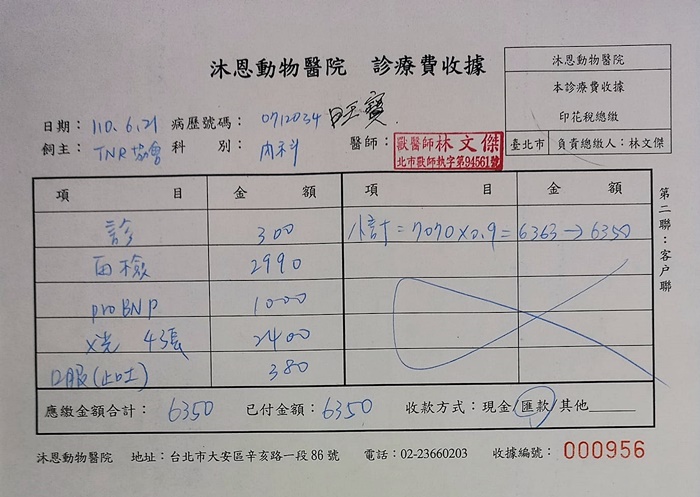 沐恩動物醫院 診療費收據
沐恩動物醫院
本診療費收據
印花稅總繳
臺北市 負責總繳人：林文傑
日期： 110.6.21 病歷號碼： 0712034 旺寶
飼主： TNR協會 科 別： 內科 醫師： 獸醫師 林文傑
北市獸師執字第94561號
項 目 金 額 項 目 金 額
診 300 小計=7070×0.9=6363→6350
血檢 2990
proBNP 1000
X光 4張 2400
口服(止吐) 380
應繳金額合計： 6350 已付金額： 6350 收款方式：現金/匯款/其他______
第二聯：客戶聯
沐恩動物醫院 地址：台北市大安區辛亥路一段86號 電話：02-23660203 收據編號： 000956